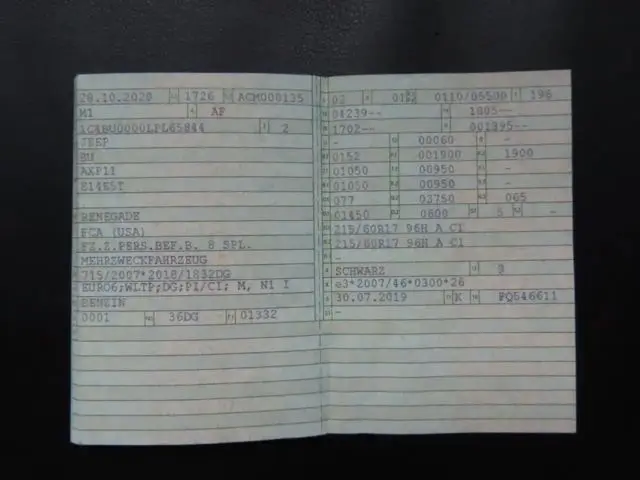 28.10.2020 1726 ACM000135
M1 AF
1C4BU0000LPL65844 2
JEEP
BU
AXP11
E14EST
RENEGADE
FCA (USA)
FZ.Z.PERS.BEF.B. 8 SPL.
MEHRZWECKFAHRZEUG
715/2007*2018/1832DG
EURO6;WLTP;DG;PI/CI; M, N1 I
BENZIN
0001 36DG 01332
02 0110/05500 196
04239-- 1805--
1702-- 001395--
- 00060 -
0152 001900 1900
01050 00950 -
01050 00950 -
077 03750 065
01450 0600 5 -
215/60R17 96H A C1
215/60R17 96H A C1
-
SCHWARZ 9
e3*2007/46*0300*26
30.07.2019 K FQ546611
-